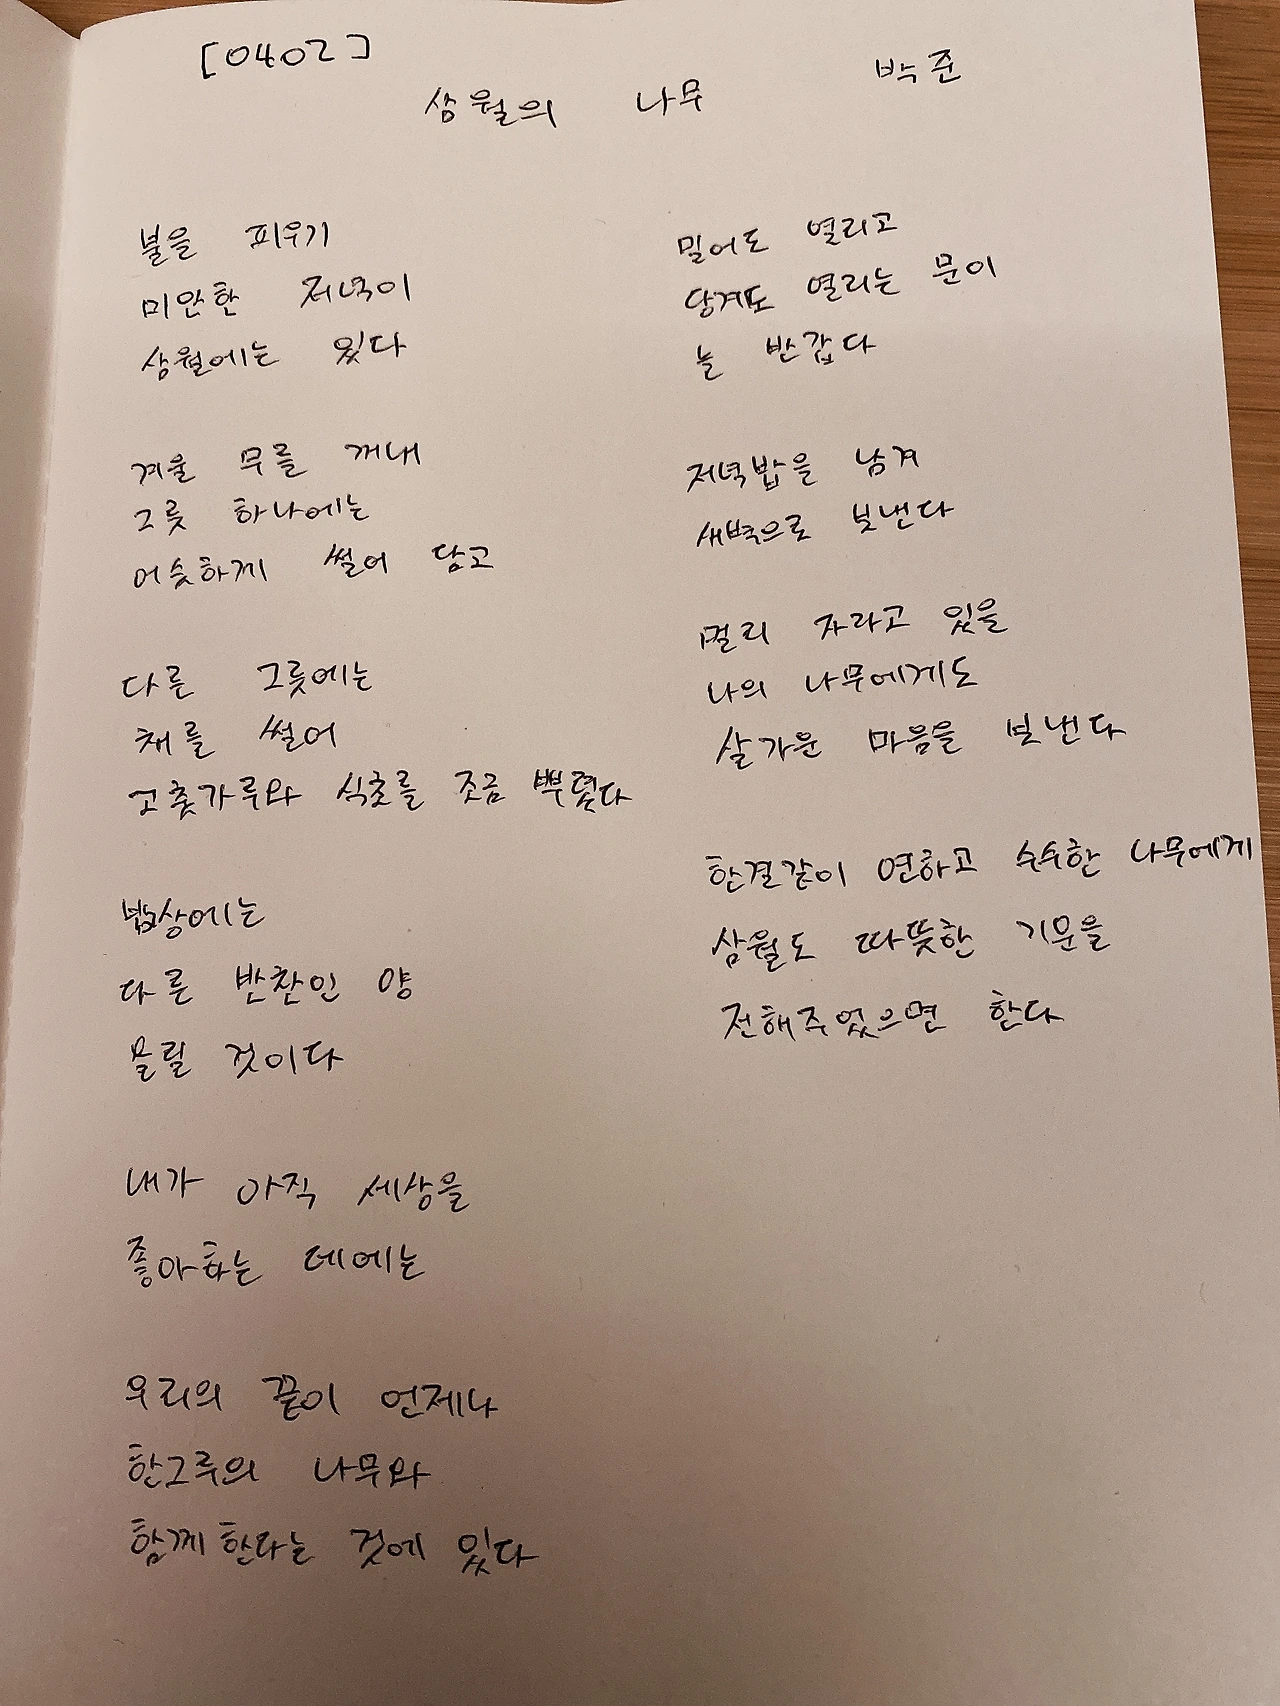 [0402]
삼월의 나무 박준
불을 피우기
미안한 저녁이
삼월에는 있다
겨울 무를 꺼내
그릇 하나에는
어슷하게 썰어 담고
다른 그릇에는
채를 썰어
고춧가루와 식초를 조금 뿌렸다
밥상에는
다른 반찬인 양
올릴 것이다
내가 아직 세상을
좋아하는 데에는
우리의 끝이 언제나
한그루의 나무와
함께한다는 것에 있다
밀어도 열리고
당겨도 열리는 문이
늘 반갑다
저녁밥을 남겨
새벽으로 보낸다
멀리 자라고 있을
나의 나무에게도
살가운 마음을 보낸다
한결같이 연하고 수수한 나무에게
삼월도 따뜻한 기운을
전해주었으면 한다